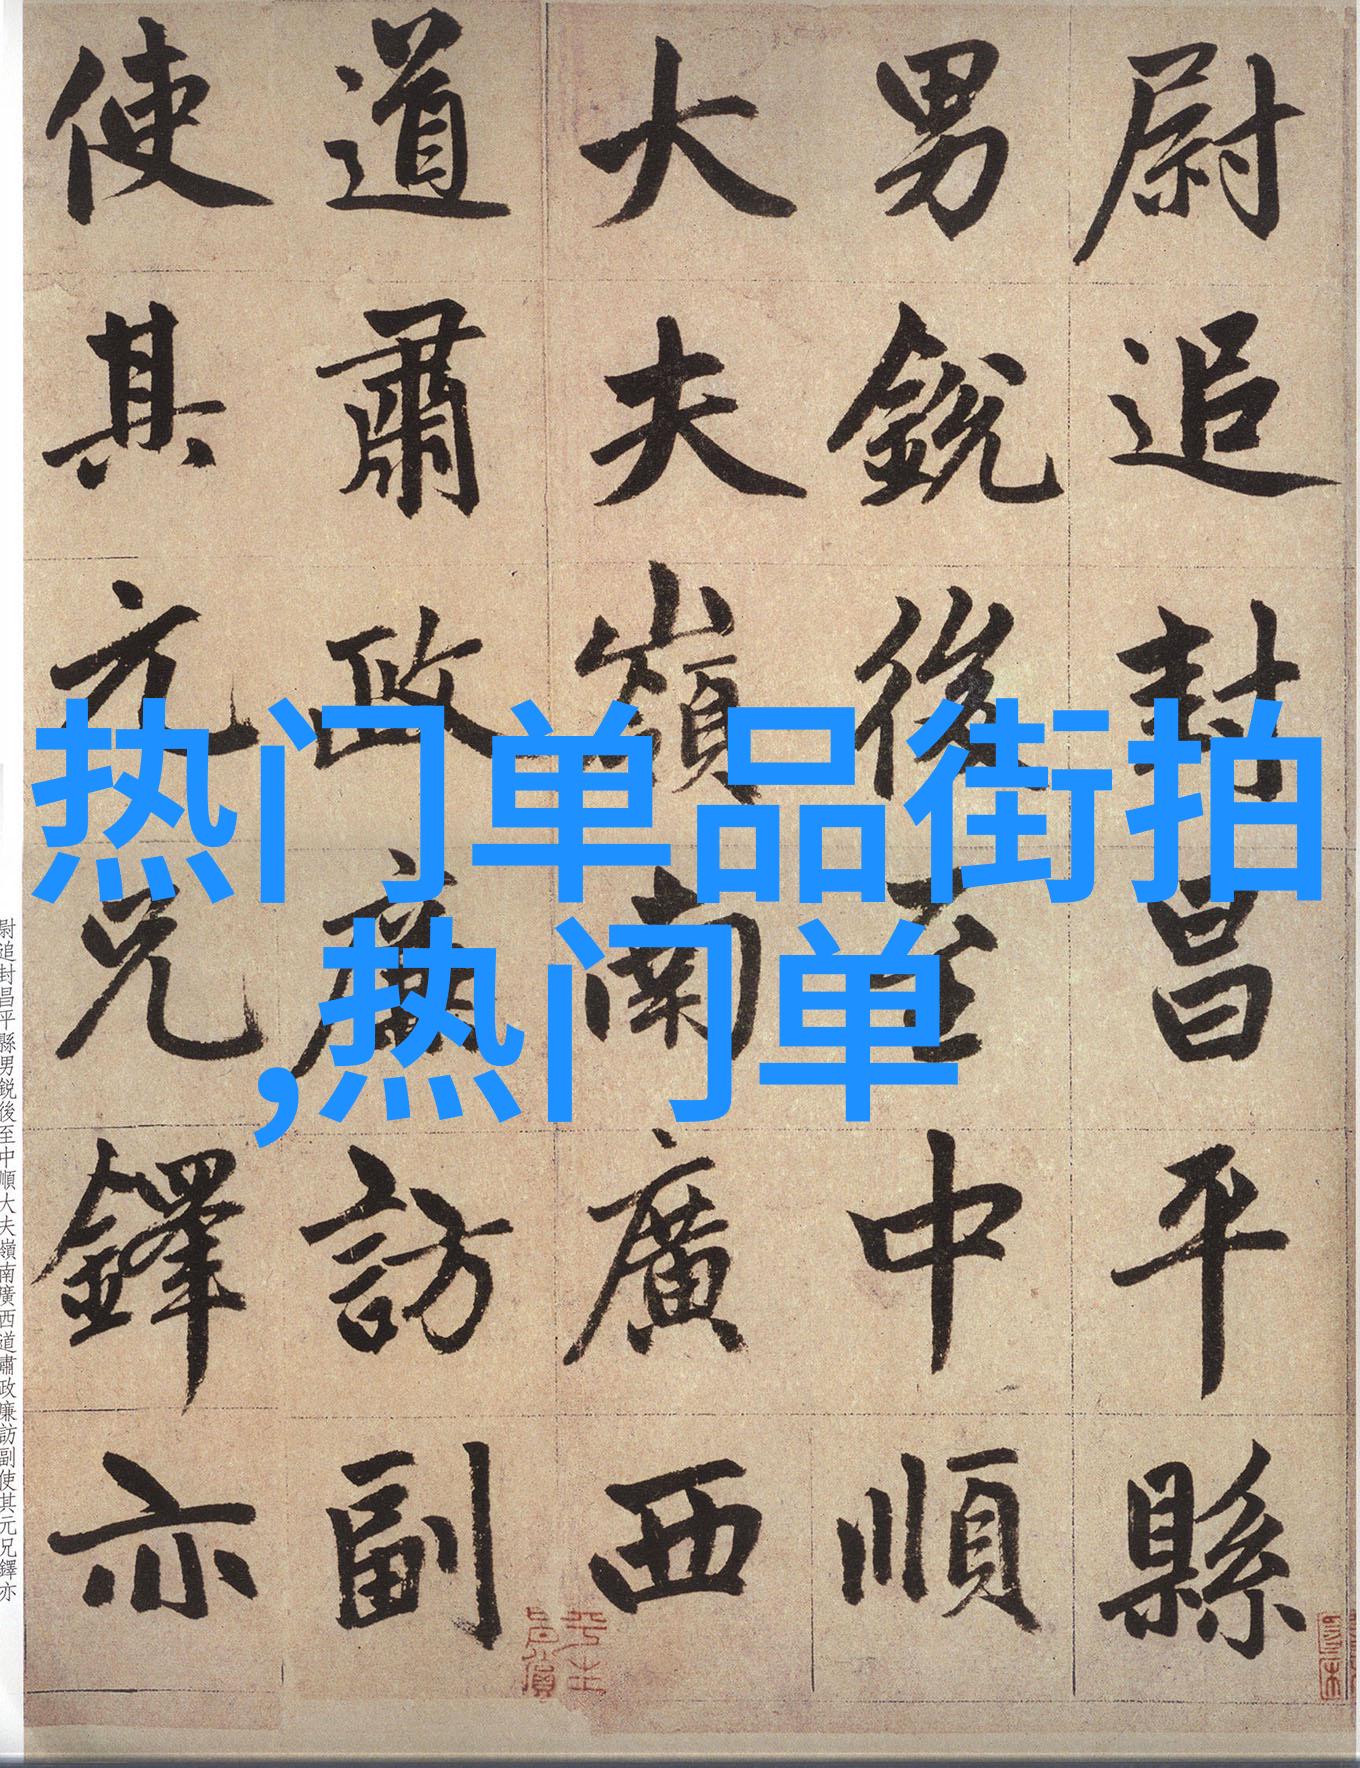 尉追封昌平縣
男銳後至中順
大夫嶺南廣西
道肅政廉訪副
使其元兄鐸亦
热门单品街拍
,热门单
尉追封昌平縣男銳後至中順大夫嶺南廣西道肅政廉訪副使其元兄鐸亦